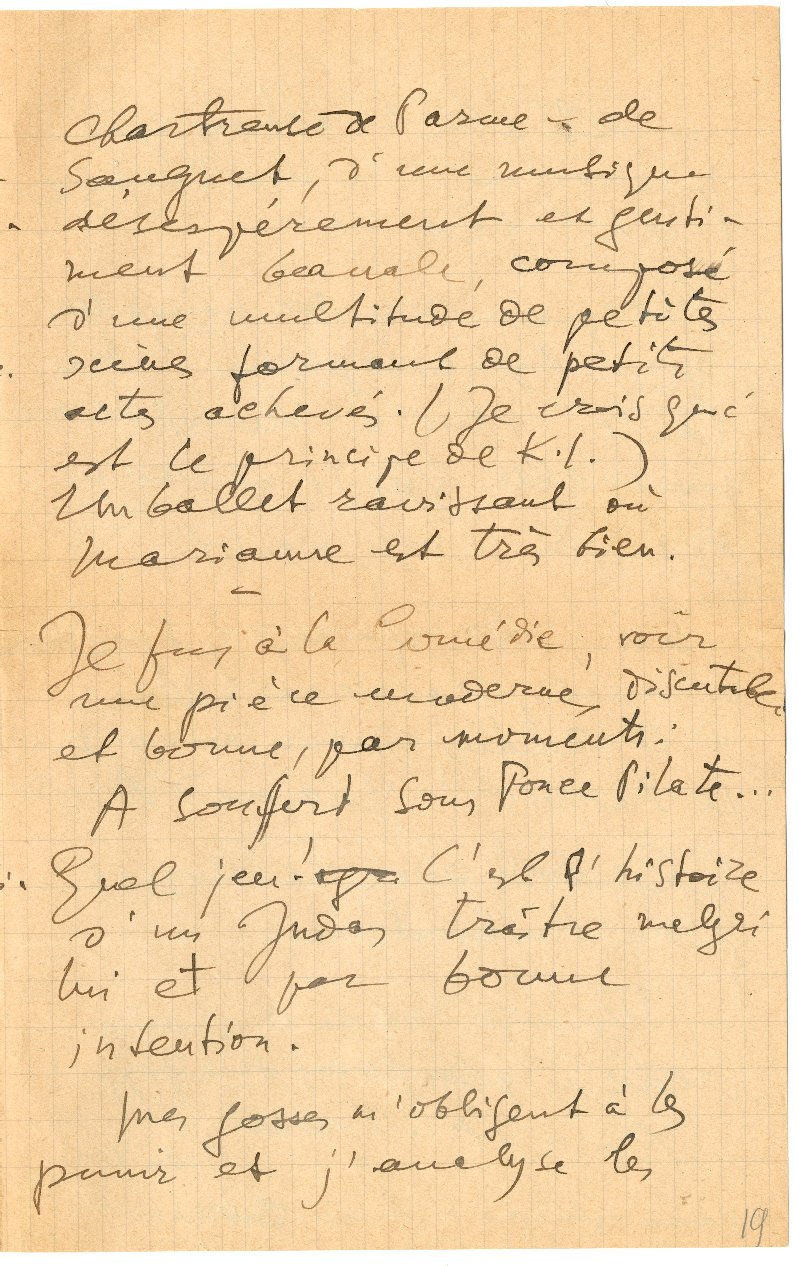 Chartreuse de Parme - de
Sauguet, d'une musique
désespérément et genti-
ment banale, composé
d'une multitude de petites
scènes formant de petits
actes achevés. (Je crois que c'
est le principe de K.I.)
Un ballet ravissant où
Marianne est très bien.
Je fus à la Comédie, voir
une pièce moderne, discutable
et bonne, par moments:
A souffert sous Ponce Pilate...
Quel jeu! C'est l'histoire
d'un Judas traître malgré
lui et par bonne
intention.
Mes gosses m'obligent à les
punir et j'analyse les
19